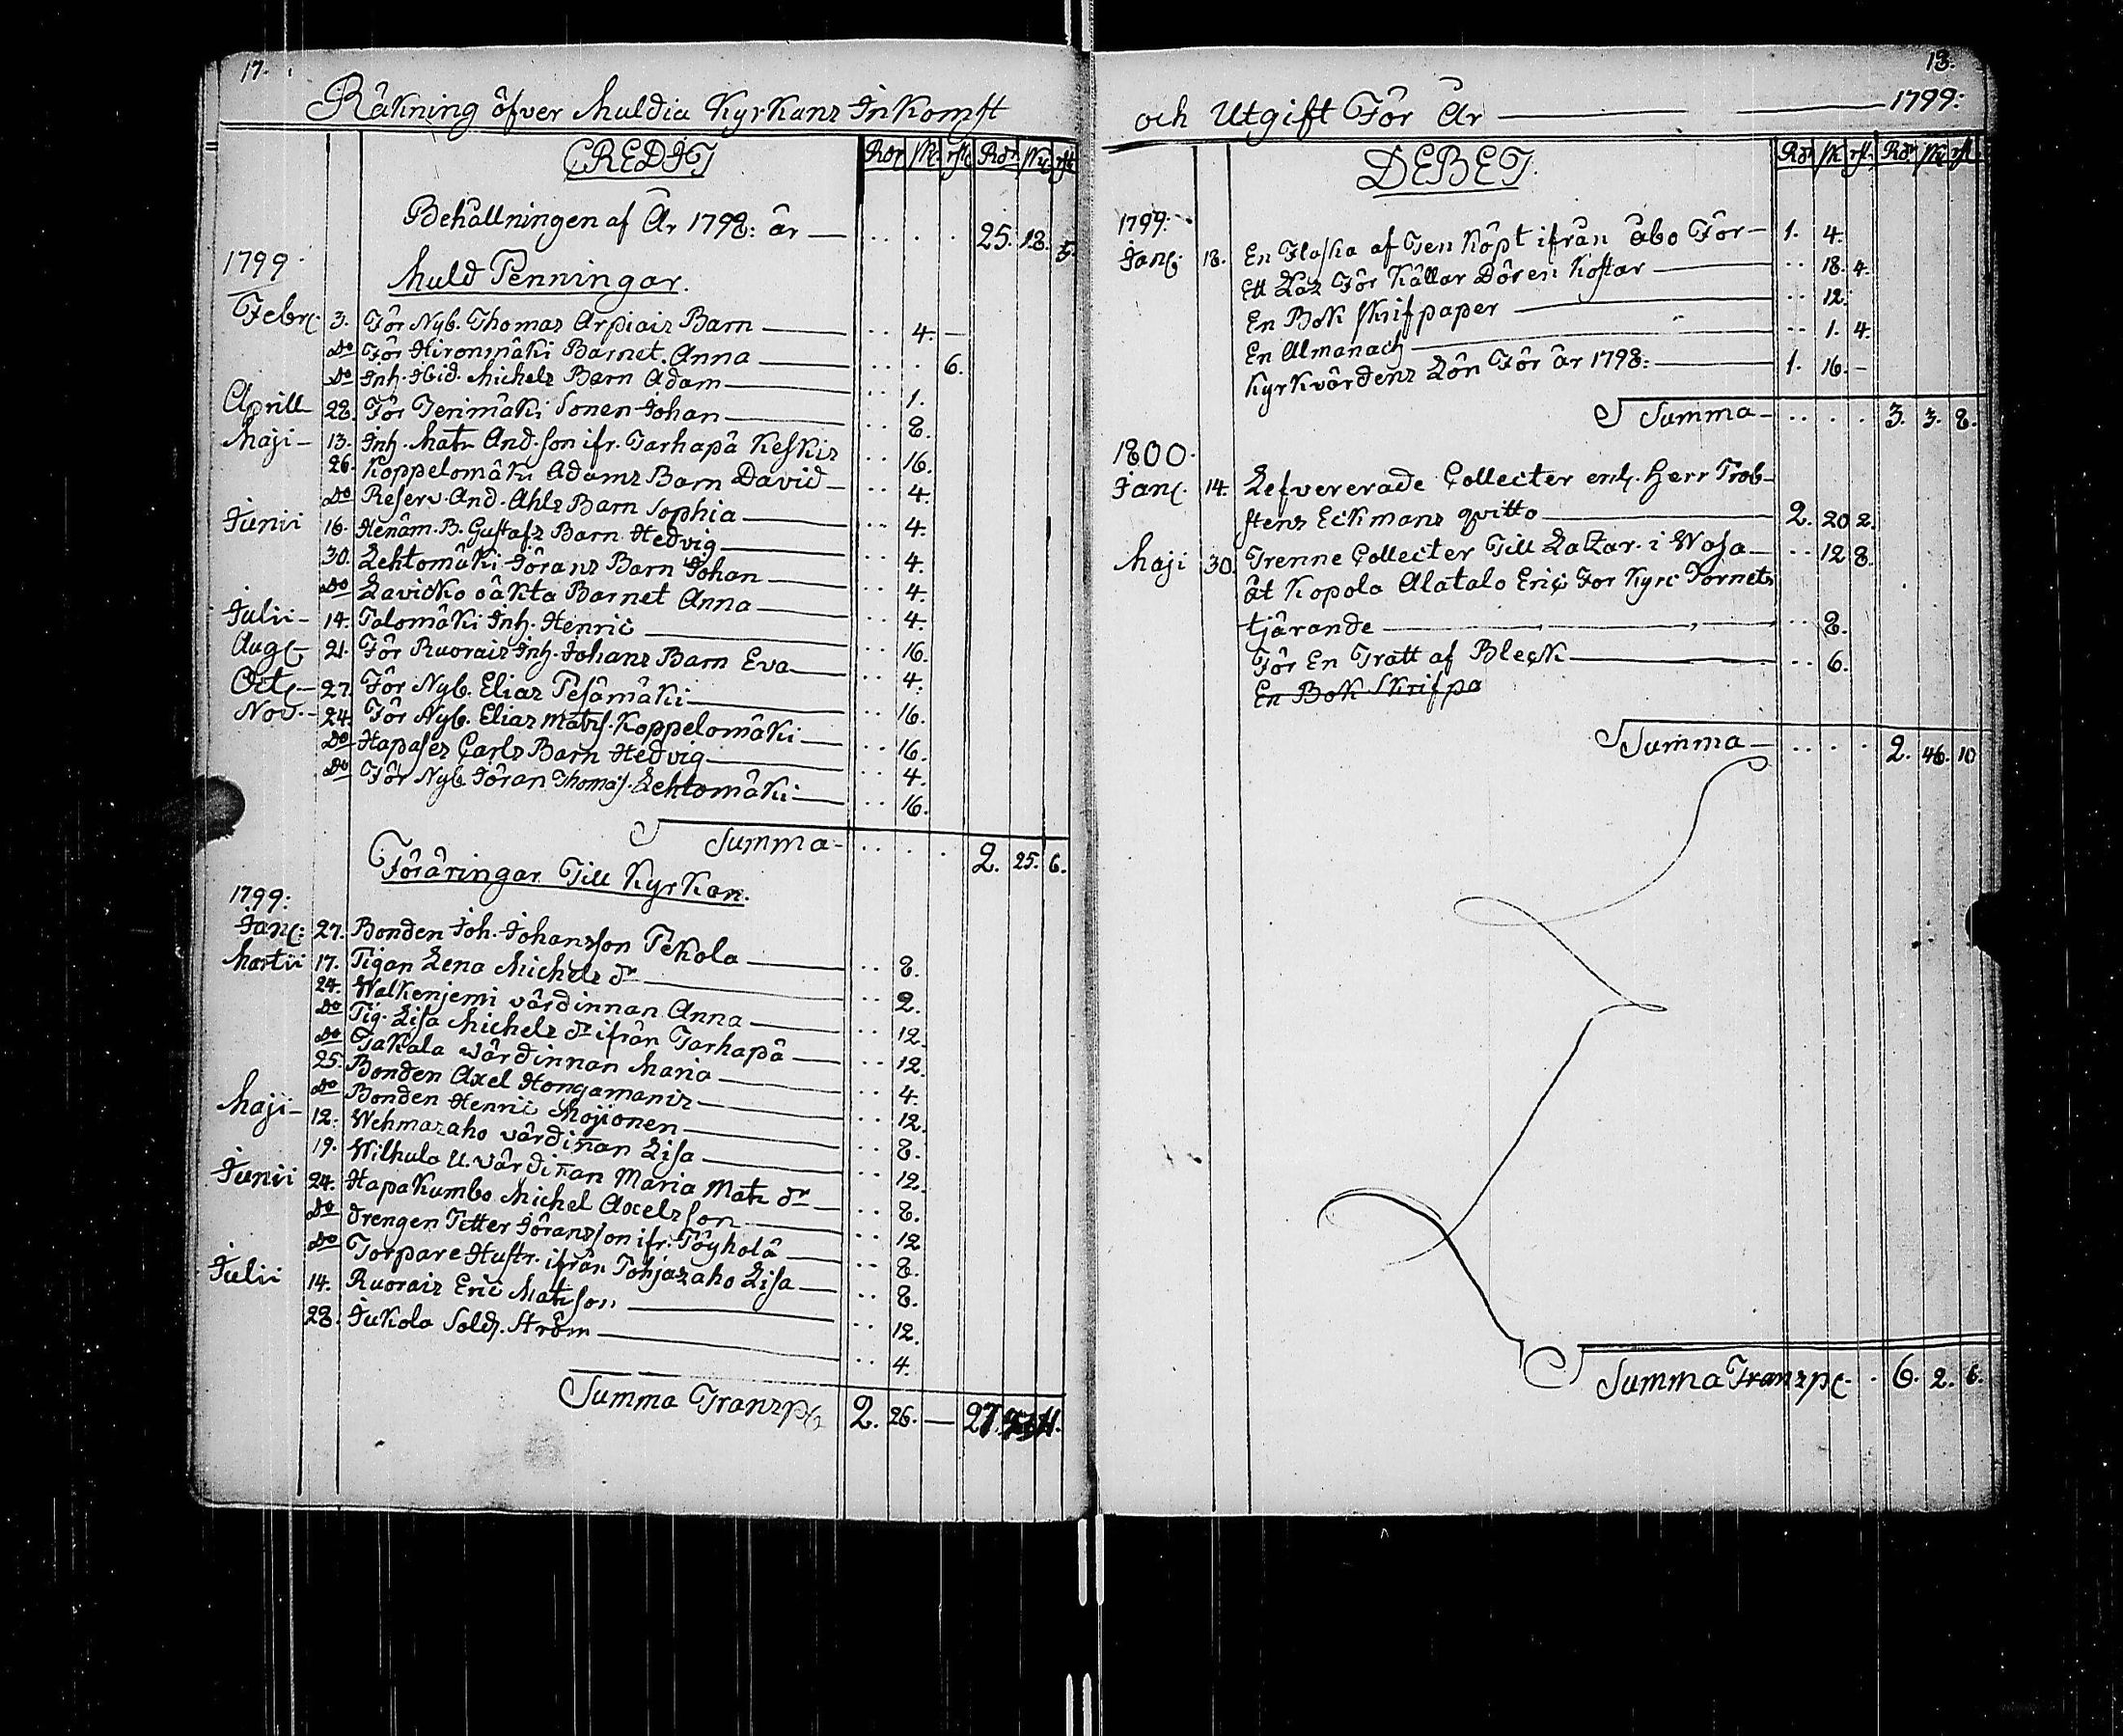 17.
Räkning öfver Muldia Kyrkans Inkomst
CREDIT Rdr sk. rst. Rdr sk. rst
Behållningen af År 1798: är — 25. 18. 5.
1799.
Muld Penningar.
Febr. 3. För Nyb. Thomas Arpiais Barn — 4. —
Do För Hironmäki Barnet Anna — 6.
Do Inh. Ibid. Michels Barn Adam — 1.
Aprill 28. För Terimäki Sonen Johan — 8.
Maji 13. Inh. Mats And.son ifr. Tarhapä Keskis 16.
26. Koppelomäki Adams Barn David — 4.
Do Reserv. And. Ahls Barn Sophia — 4.
Junii 16. Henäm. B. Gustafs Barn Hedvig — 4.
30. Lehtomäki Jörans Barn Johan — 4.
Do Lavicko oäkta Barnet Anna — 4.
Julii 14. Talomäki Inh. Henric — 16.
Aug. 21. För Ruorais Inh. Johans Barn Eva — 4.
Oct. 27. För Nyb. Elias Pesämäki — 16.
Nov. 24. För Nyb. Elias Mats. Koppelomäki — 16.
Do Hapases Carls Barn Hedvig — 4.
Do För Nyb. Jöran Thomas. Lehtomäki — 16.
Summa — 2. 25. 6.
Föräringar Till Kyrkan.
1799:
Jan: 27. Bonden Joh. Johansson Pekola — 8.
Martii 17. Pigan Lena Michels dr — 2.
24. Walkenjemi värdinnan Anna — 12.
Do Pig. Lisa Michels dr ifrån Tarhapä — 12.
Do Takala wärdinnan Maria — 4.
25. Bonden Axel Hongamanis — 12.
Do Bonden Henric Mojionen — 8.
Maji 12. Wehmasaho värdiñan Lisa — 12.
19. Wilhula U. värdiñan Maria Mats dr — 8.
Junii 24. Hapakumbo Michel Axelsson — 12
Do Drengen Petter Jöransson ifr. Pöyholä — 8.
Do Torpare Hustr. ifrån Pohjasaho Lisa — 8.
Julii 14. Ruorais Eric Matsson — 12.
28. Jukola Sold. Ström — 4.
Summa Transp. 2. 26. — 27.
13.
och Utgift För År — 1799:
DEBET. Rdr sk. rst. Rdr sk. rst.
1799.
Jan. 18. En Flaska af Ten Köpt ifrån Åbo För — 1. 4.
Ett Las För Källar Dören Kostar — 18. 4.
En Bok Skrifpaper — 12.
En Almanach — 1. 4.
Kyrkvärdens Lön För år 1798: — 1. 16. —
Summa — 3. 3. 8.
1800.
Jan. 14. Lefvererade Collecter enl. Herr Prob-
stens Eckmans qvitto — 2. 20 2.
Maji 30. Trenne Collecter Till Lazar. i Wasa — 12 8.
åt Kopola Alatalo Eric For Kyrc Tornets
tjärande — 8.
För En Tratt af Bleck — 6.
En Bok Skrifpa
Summa — 2. 46. 10
Summa Transp. 6. 2. 6.